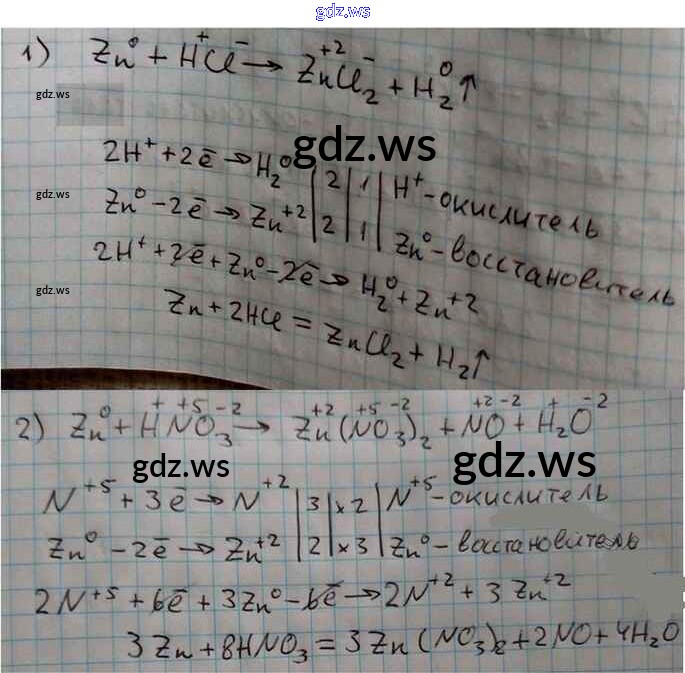 gdz.ws
1) Zn⁰ + H⁺Cl⁻ → Zn⁺²Cl⁻₂ + H⁰₂↑
gdz.ws
gdz.ws
2H⁺ + 2ē → H₂⁰ | 2 | 1 | H⁺ - окислитель
gdz.ws
Zn⁰ - 2ē → Zn⁺² | 2 | 1 | Zn⁰ - восстановитель
2H⁺ + 2ē + Zn⁰ - 2ē → H₂⁰ + Zn⁺²
gdz.ws
Zn + 2HCl = ZnCl₂ + H₂↑
2) Zn⁰ + H⁺N⁺⁵O⁻²₃ → Zn⁺²(N⁺⁵O⁻²₃)₂ + N⁺²O⁻² + H⁺₂O⁻²
gdz.ws
gdz.ws
N⁺⁵ + 3ē → N⁺² | 3 | x2 | N⁺⁵ - окислитель
Zn⁰ - 2ē → Zn⁺² | 2 | x3 | Zn⁰ - восстановитель
2N⁺⁵ + 6ē + 3Zn⁰ - 6ē → 2N⁺² + 3Zn⁺²
3Zn + 8HNO₃ = 3Zn(NO₃)₂ + 2NO + 4H₂O